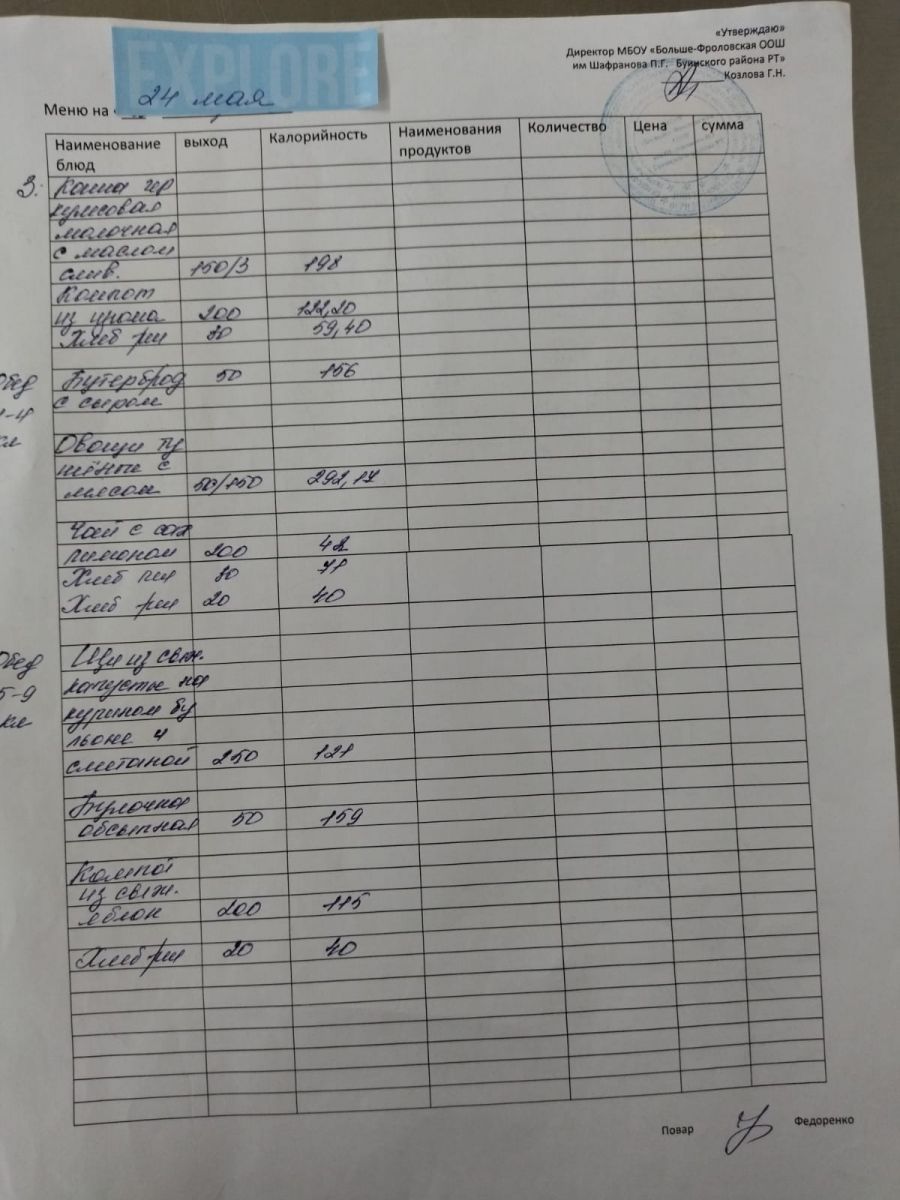 «Утверждаю»
Директор МБОУ «Больше-Фроловская ООШ
им Шафранова П.Г. Буинского района РТ»
Козлова Г.Н.
EXPLORE
24 мая
Меню на «
Наименование блюд выход Калорийность Наименования продуктов Количество Цена сумма
З. Каша гер
кулесовая
молочная
с маслом
слив. 150/3 198
Компот
из изюма 200 122,20
Хлеб рж 30 59,40
Обед Бутерброд 50 156
1-4 с сыром
кл Овощи ту
шёные с
мясом 50/150 292,17
Чай с сах
лимоном 200 42
Хлеб пш 30 71
Хлеб рж 20 40
Обед Щи из свеж.
5-9 капусты на
кл курином бу
льоне и
сметаной 250 121
Булочка
обсыпная 50 159
Компот
из свеж.
яблок 200 115
Хлеб рж 20 40
Повар Федоренко